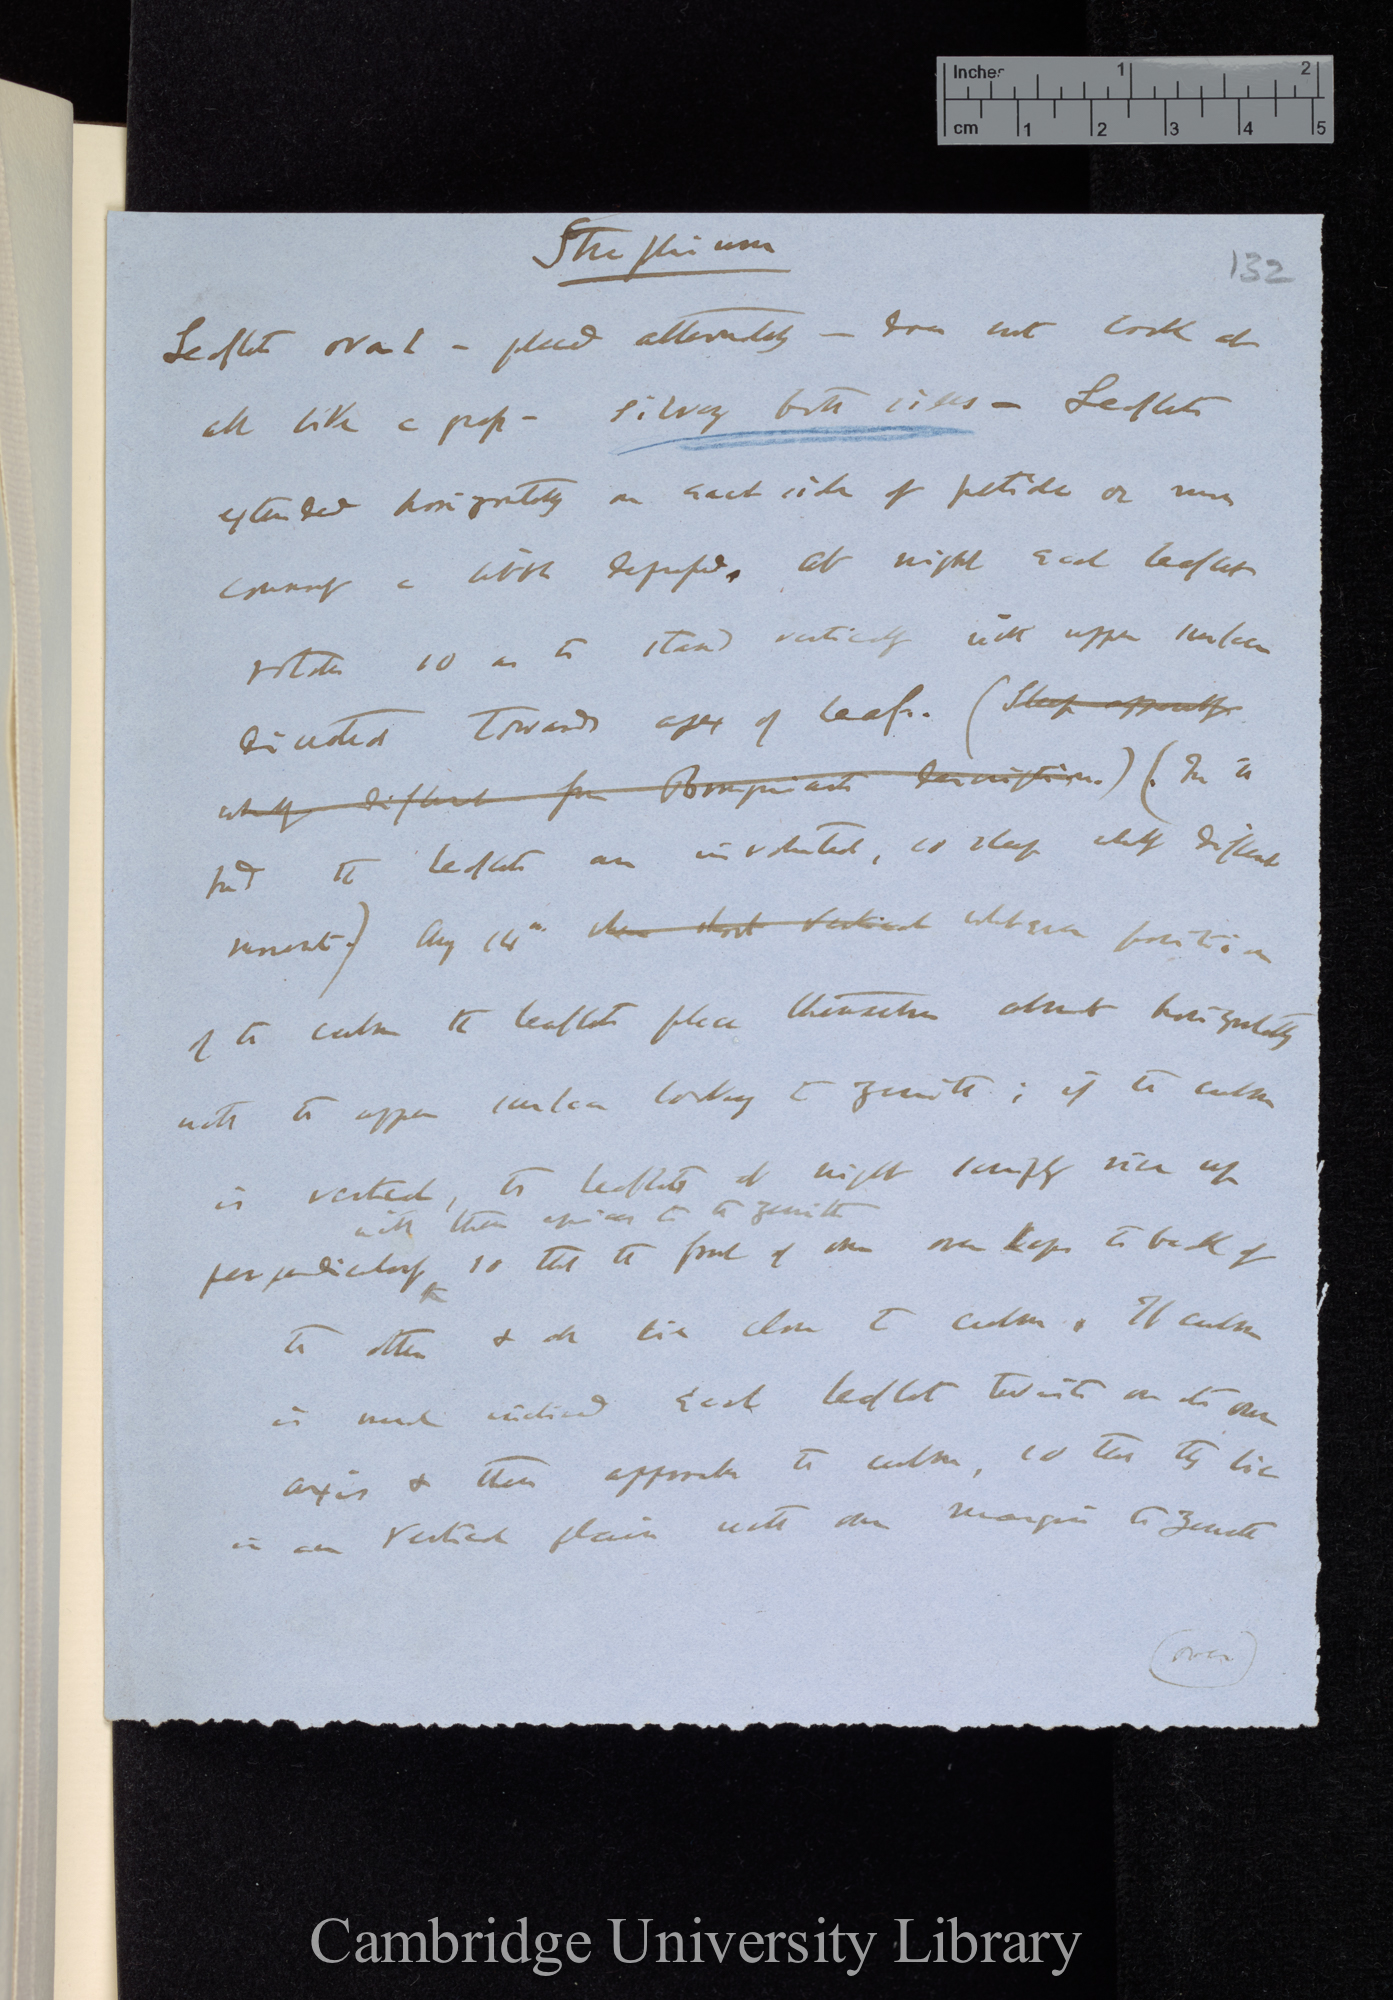 Inches 1 2
cm 1 2 3 4 5
Strephium
132
Leaflets oval – placed alternately – does not look at
all like a grass – silvery both sides – Leaflets
extended horizontally on each side of petiole or
a little depressed. At night each leaflet
rotates so as to stand vertically with upper surface
directed towards apex of leaf. (Sleep apparently
wholly different from Brongniart's description.) (In the
bud the leaflets are involuted, so sleep wholly different
movement.) Aug 14th when shoot vertical whatever position
of the culm the leaflets place themselves almost horizontally
with the upper surface looking to zenith; if the culm
is vertical, the leaflets at night simply rise up
with their apices to the zenith
perpendicularly so that the front of one overlaps the back of
the other & all lie close to culm. If culm
is much inclined each leaflet twists on its own
axis & then approaches the culm, so that they lie
in a vertical plain with one margin to zenith
(over)
Cambridge University Library